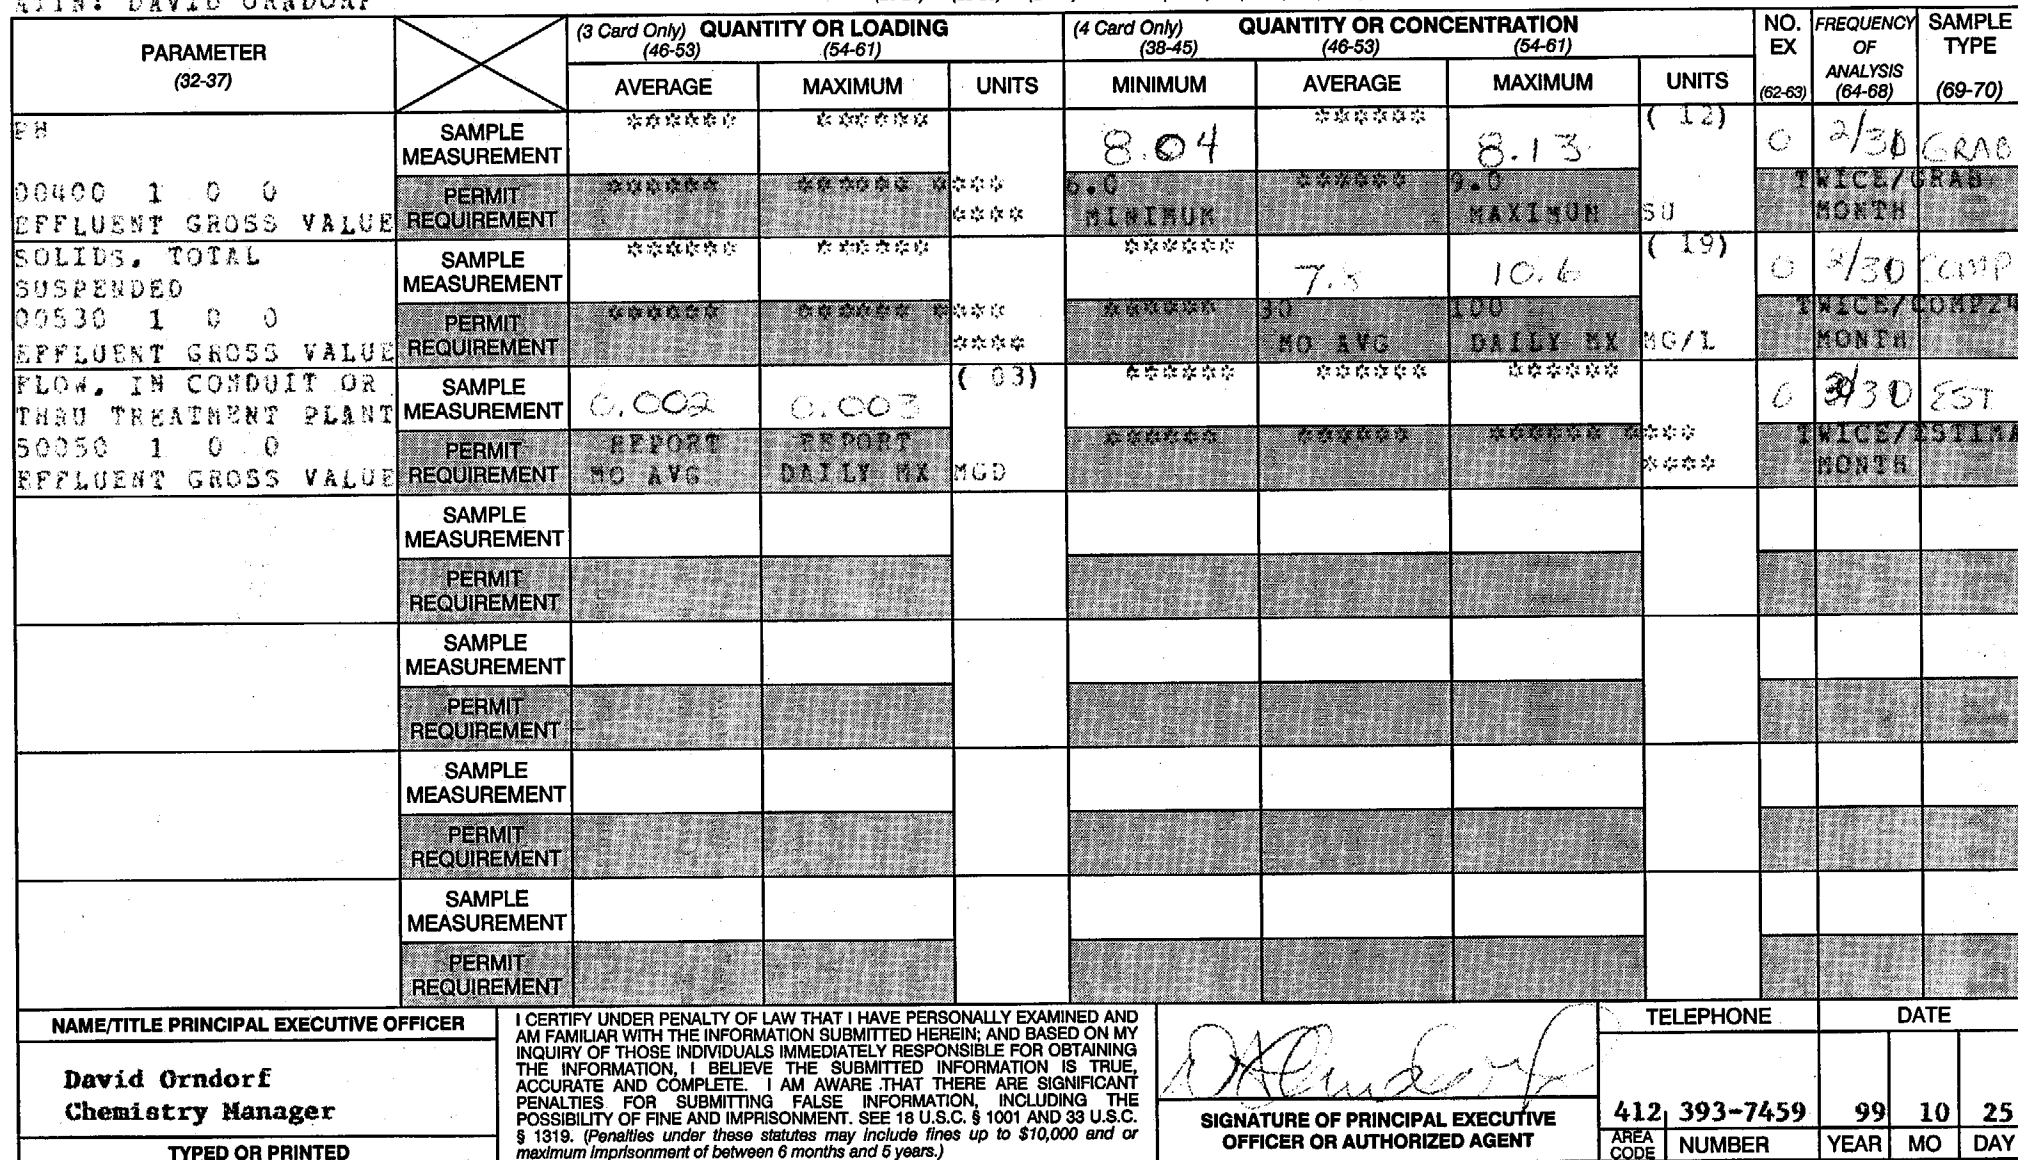 ATTN: DAVID ORNDORF
PARAMETER
(32-37)
(3 Card Only) QUANTITY OR LOADING
(46-53) (54-61)
AVERAGE MAXIMUM UNITS
(4 Card Only) QUANTITY OR CONCENTRATION
(38-45) (46-53) (54-61)
MINIMUM AVERAGE MAXIMUM UNITS
NO.
EX
(62-63)
FREQUENCY
OF
ANALYSIS
(64-68)
SAMPLE
TYPE
(69-70)
PH
00400 1 0 0
EFFLUENT GROSS VALUE
SAMPLE
MEASUREMENT
****** ****** 8.04 ****** 8.13 ( 12) 0 2/30 GRAB
PERMIT
REQUIREMENT
****** ****** **** 6.0 ****** 9.0 TWICE/GRAB
**** MINIMUM MAXIMUM SU MONTH
SOLIDS, TOTAL
SUSPENDED
00530 1 0 0
EFFLUENT GROSS VALUE
SAMPLE
MEASUREMENT
****** ****** ****** 10.6 ( 19) 0 2/30 COMP
PERMIT
REQUIREMENT
****** ****** **** ****** 30 100 TWICE/COMP24
**** MO AVG DAILY MX MG/L MONTH
FLOW, IN CONDUIT OR
THRU TREATMENT PLANT
50050 1 0 0
EFFLUENT GROSS VALUE
SAMPLE
MEASUREMENT
0.002 0.003 ( 03) ****** ****** ****** 0 EST
PERMIT
REQUIREMENT
REPORT REPORT ****** ****** ****** **** TWICE/ESTIMA
MO AVG DAILY MX MGD **** MONTH
SAMPLE
MEASUREMENT
PERMIT
REQUIREMENT
SAMPLE
MEASUREMENT
PERMIT
REQUIREMENT
SAMPLE
MEASUREMENT
PERMIT
REQUIREMENT
SAMPLE
MEASUREMENT
PERMIT
REQUIREMENT
NAME/TITLE PRINCIPAL EXECUTIVE OFFICER
David Orndorf
Chemistry Manager
TYPED OR PRINTED
I CERTIFY UNDER PENALTY OF LAW THAT I HAVE PERSONALLY EXAMINED AND
AM FAMILIAR WITH THE INFORMATION SUBMITTED HEREIN; AND BASED ON MY
INQUIRY OF THOSE INDIVIDUALS IMMEDIATELY RESPONSIBLE FOR OBTAINING
THE INFORMATION, I BELIEVE THE SUBMITTED INFORMATION IS TRUE,
ACCURATE AND COMPLETE. I AM AWARE THAT THERE ARE SIGNIFICANT
PENALTIES FOR SUBMITTING FALSE INFORMATION, INCLUDING THE
POSSIBILITY OF FINE AND IMPRISONMENT. SEE 18 U.S.C. § 1001 AND 33 U.S.C.
§ 1319. (Penalties under these statutes may include fines up to $10,000 and or
maximum imprisonment of between 6 months and 5 years.)
SIGNATURE OF PRINCIPAL EXECUTIVE
OFFICER OR AUTHORIZED AGENT
TELEPHONE
412 393-7459
AREA
CODE
NUMBER
DATE
99 10 25
YEAR MO DAY